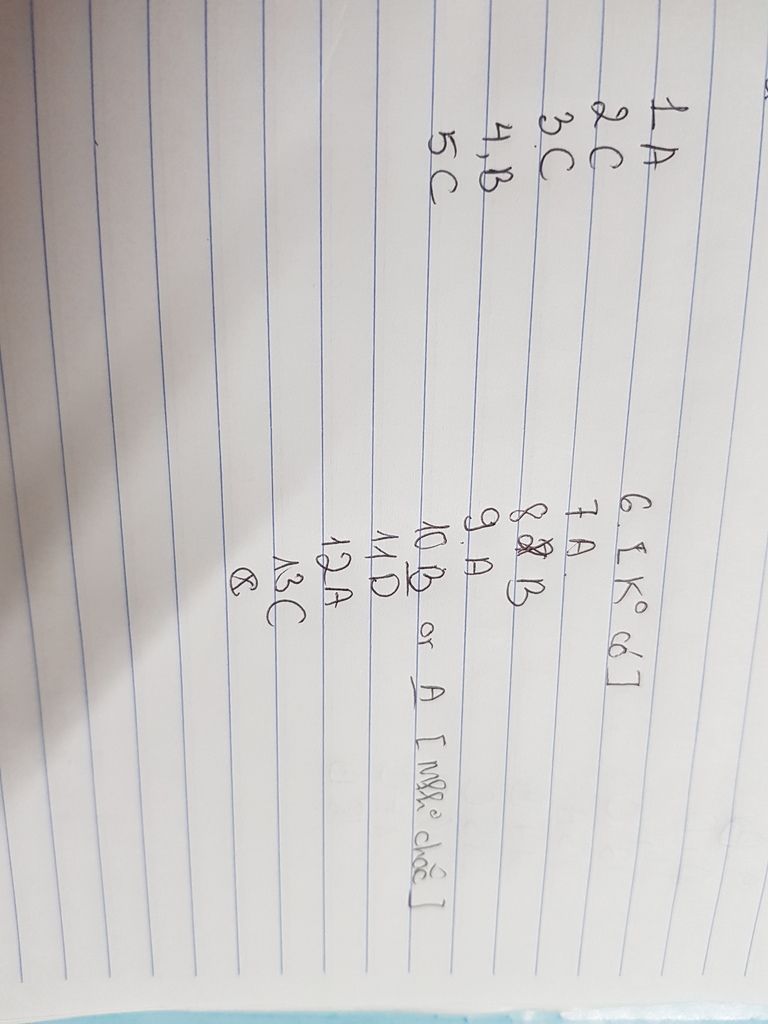 1 A
2 C
3 C
4, B
5 C
6. [ K° có ]
7 A
8 B
9. A
10 B or A [ chắc ]
11 D
12 A
13 C